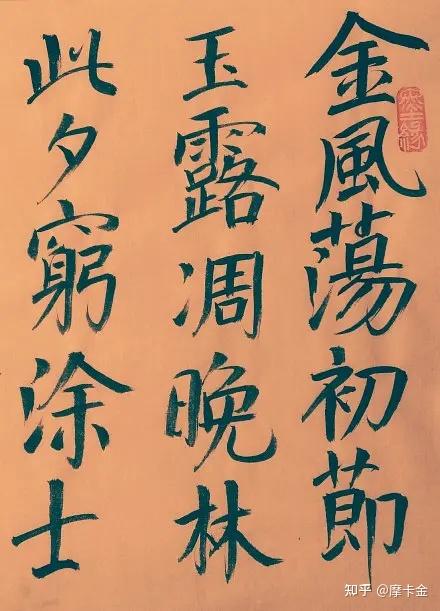 金風蕩初節
玉露凋晚林
此夕窮涂士
知乎 @摩卡金